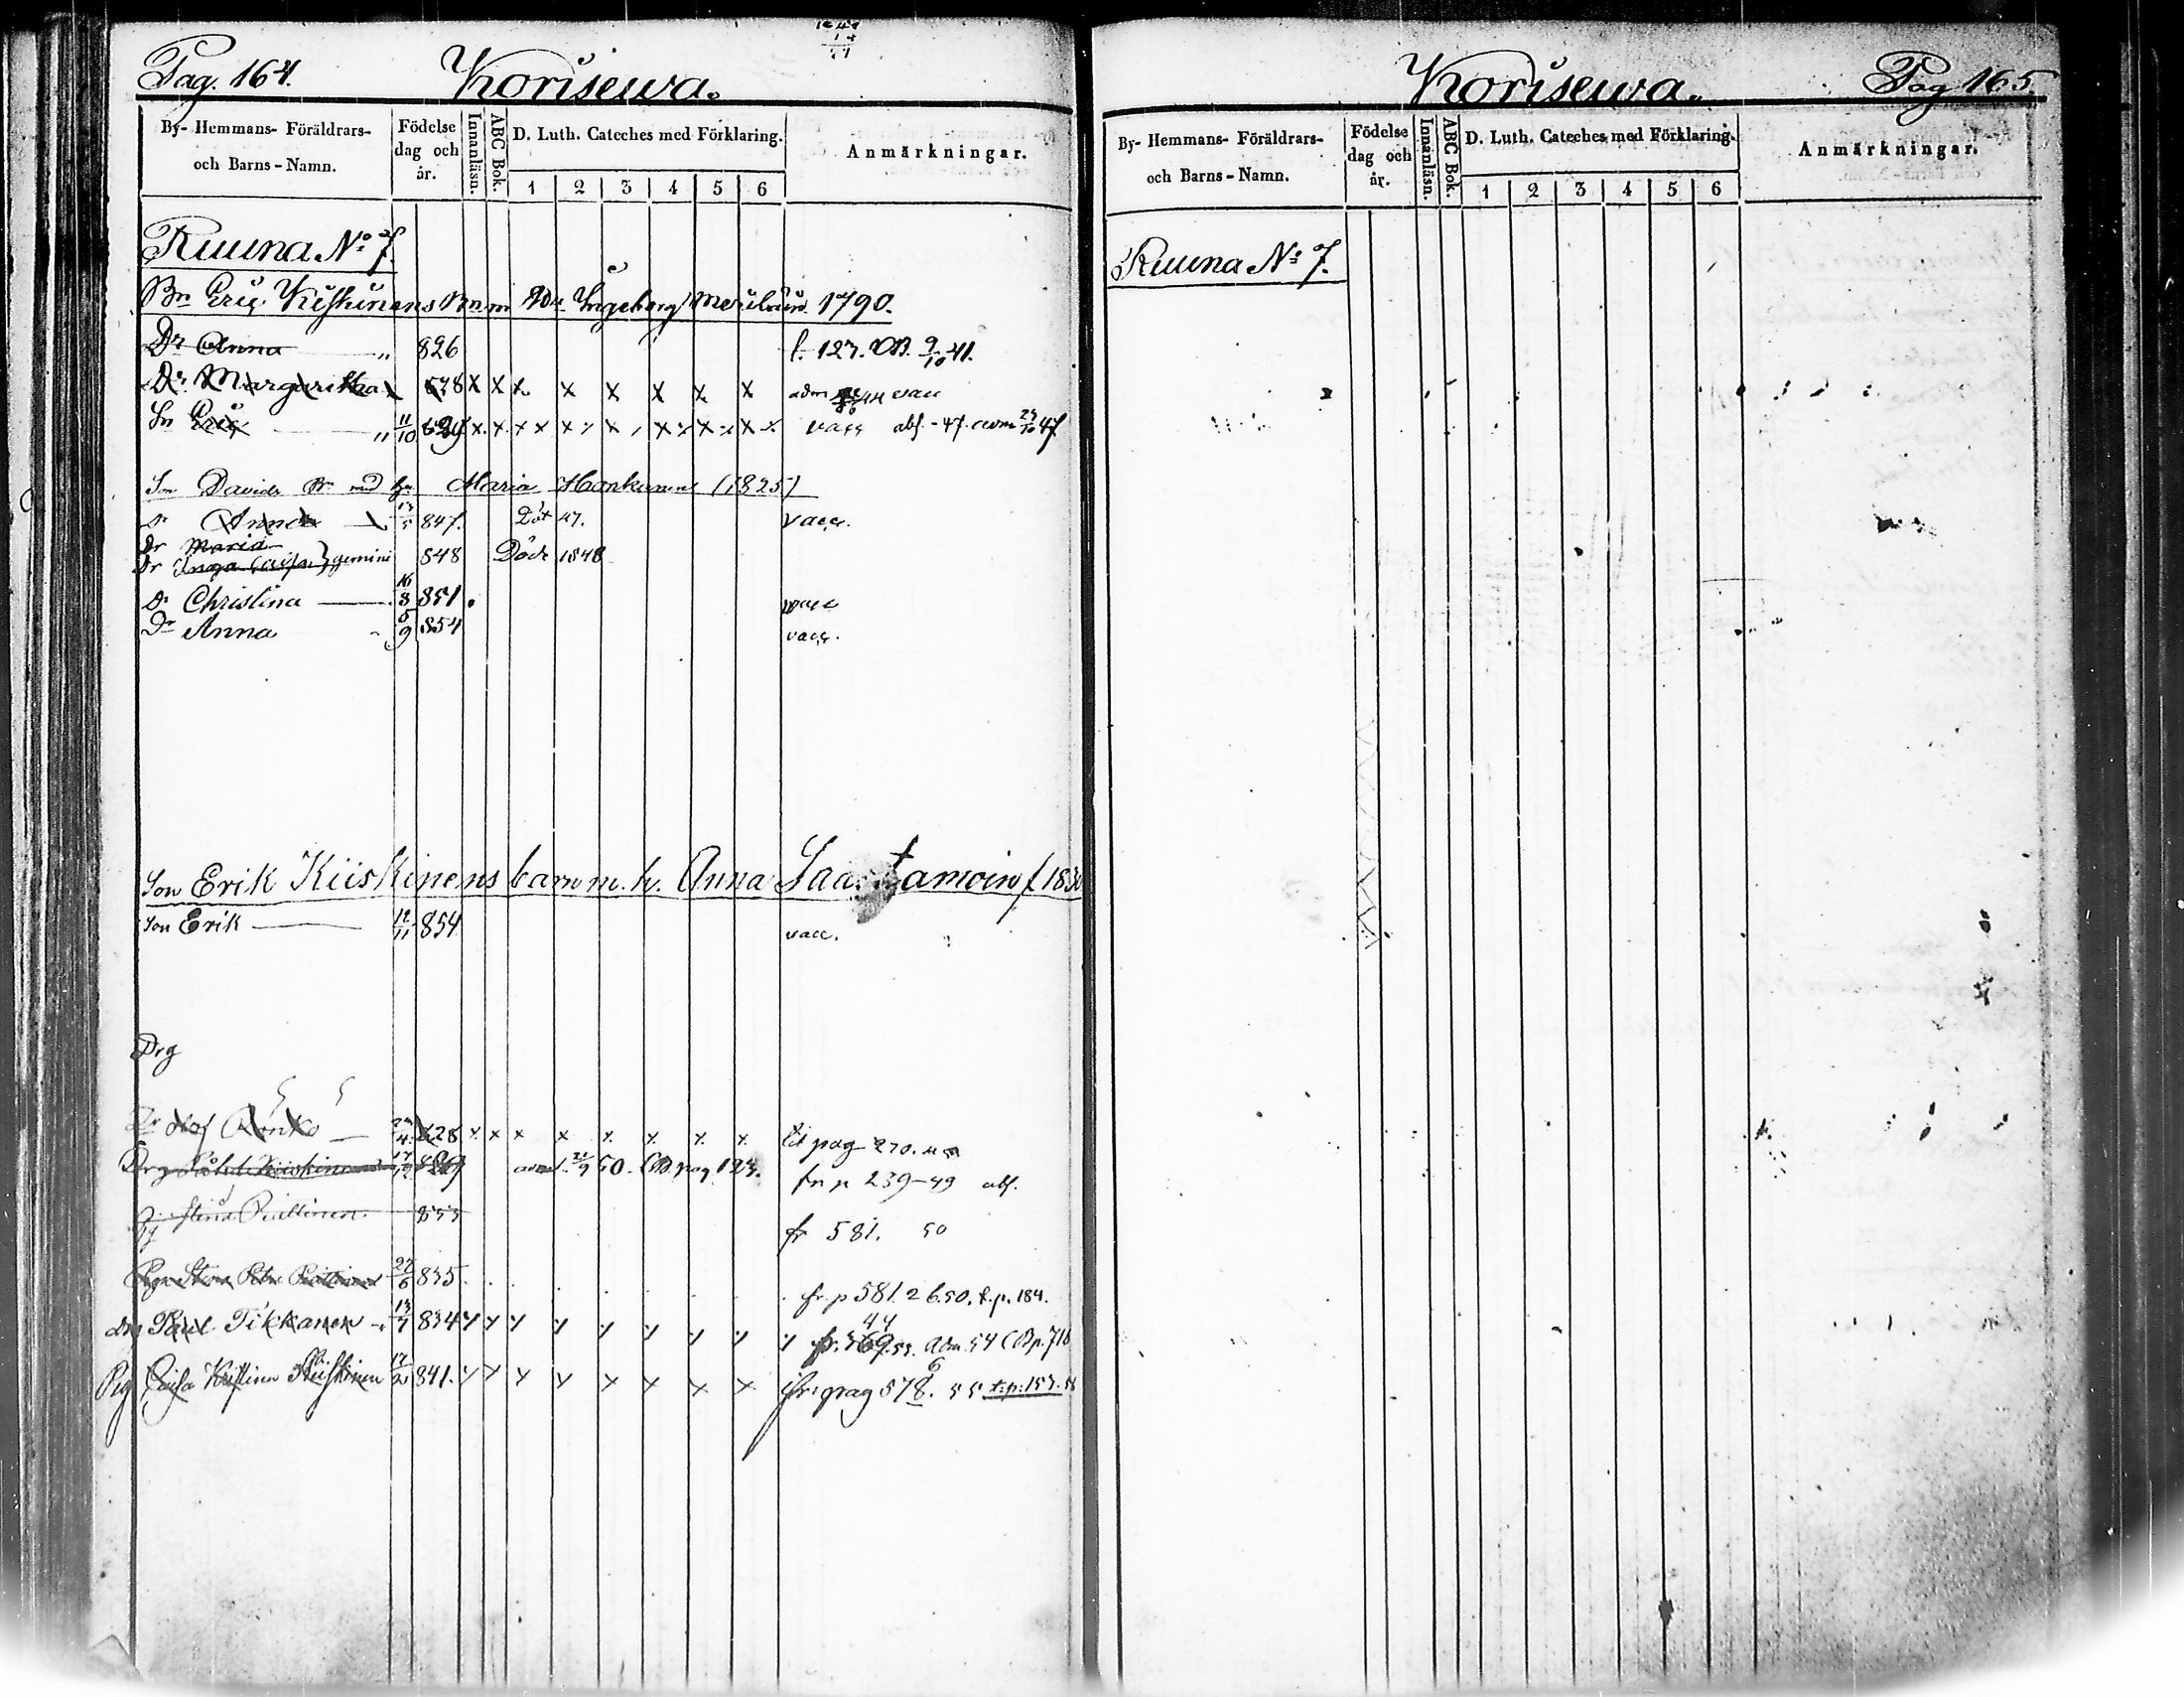 Pag. 164. Korisewa.
By- Hemmans- Föräldrars- och Barns-Namn. Födelse dag och år. Innanläsn. ABC Bok. D. Luth. Cateches med Förklaring. 1 2 3 4 5 6 Anmärkningar.
Ruuna No 7.
Bn Eric Kiiskinens Barn m Ingeborg 1790.
Dr Anna " 826 f. 127. CB. 9/10 41.
Dr Margaretha 838 x x x x x x x x adm 44 vacc
Sn Eric " 11/10 829 x x x x x x x x x vacc abs. -47. adm 23/10 47
Sn Davids Bn med hu Maria Honkanen (1825)
Dr Anna 13/5 847. Död 47. vacc.
Dr Maria
Dr Inga Lovisa } gemini 848 Döde 1848
Dr Christina 16/8 851. vacc
Dr Anna 5/9 854 vacc.
Son Erik Kiiskinens barn m. h. Anna Saastamoin f 1830
Son Erik 12/11 854 vacc.
Drg
Dr Olof Rönkö 4 828 x x x x x x x x til pag 270.
Drg Kiiskinen 829 21/9 50. CB pag 123. frn p 239-49 abs.
Pg Stina Piittinen 833 fr 581. 50
Pig Stina 22/6 835. fr. p 581. 26.50. t. p. 184.
drg Paul Tikkanen 13/7 834 y y y y y y y y y 44 fr. 369.53. adm. 54 CB p. 718
Pig Caisa Kristina Kiiskinen 17/2 841. y y y y x x x x fr. pag 578. 55 t: p: 153. 58
Korisewa. Pag 165.
By- Hemmans- Föräldrars- och Barns-Namn. Födelse dag och år. Innanläsn. ABC Bok. D. Luth. Cateches med Förklaring. 1 2 3 4 5 6 Anmärkningar.
Ruuna No 7.